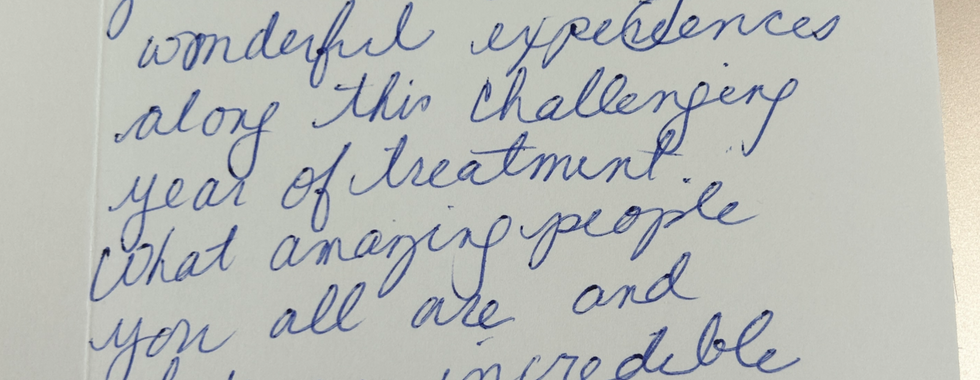 wonderful experiences
along this challenging
year of treatment.
What amazing people
you all are and
incredible